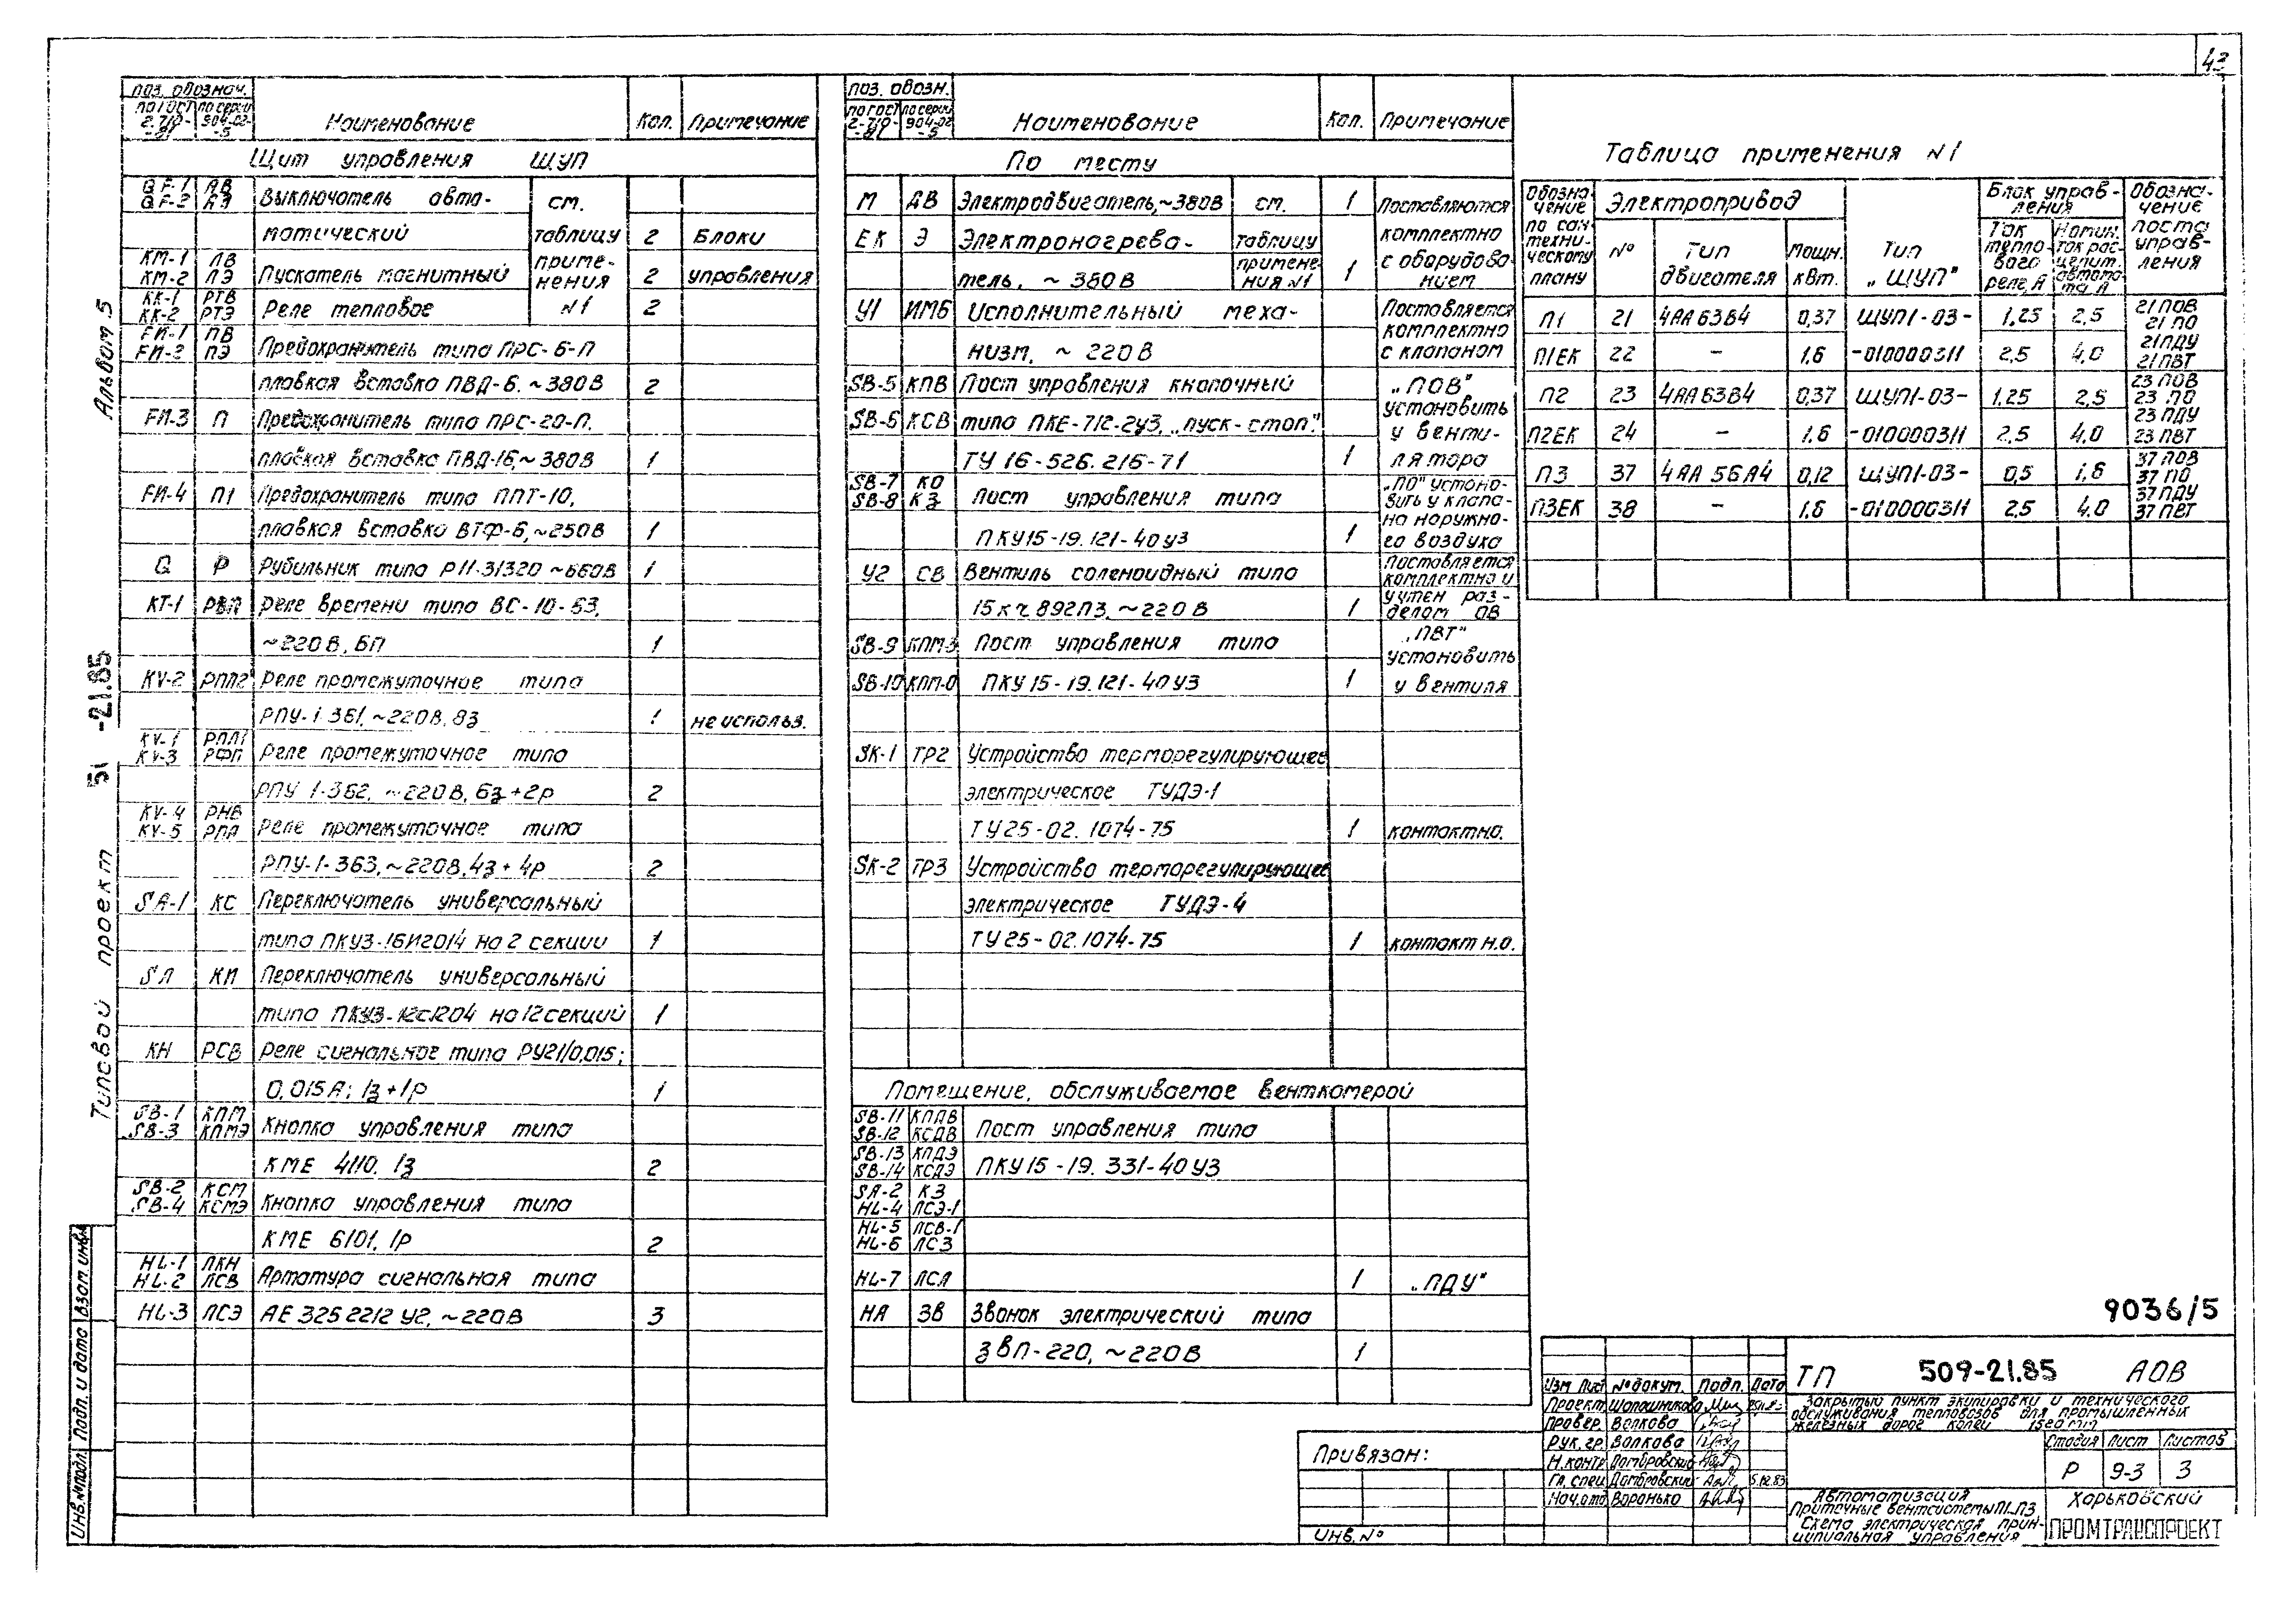 43
Альбом 5
Типовой проект
-21.85
поз. обознач.
по ГОСТ 2.710-81 | по серии 904-02-5 | Наименование | Кол. | Примечание
Щит управления ЩУП
QF-1 АВ
QF-2 АЭ
Выключатель авто- см.
матический таблицу 2 Блоки
КМ-1 ЛВ
КМ-2 ЛЭ
Пускатель магнитный приме-нения 2 управления
КК-1 РТВ
КК-2 РТЭ
Реле тепловое №1 2
FИ-1 ПВ
FИ-2 ПЭ
Предохранитель типа ПРС-6-П
плавкая вставка ПВД-6, ~380В 2
FИ-3 П Предохранитель типа ПРС-20-П,
плавкая вставка ПВД-16, ~380В 1
FИ-4 П1 Предохранитель типа ППТ-10,
плавкая вставка ВТФ-6, ~250В 1
Q Р Рубильник типа Р11-31320 ~660В 1
КТ-1 РВП Реле времени типа ВС-10-63,
~220В, 6П 1
KV-2 РПЛ2 Реле промежуточное типа
РПУ-1-361, ~220В, 8з 1 не использ.
KV-1 РПЛ1
KV-3 РФП
Реле промежуточное типа
РПУ 1-362, ~220В, 6з+2р 2
KV-4 РНВ
KV-5 РПА
Реле промежуточное типа
РПУ-1-363, ~220В, 4з+4р 2
SA-1 КС Переключатель универсальный
типа ПКУ3-16И2014 на 2 секции 1
SA КИ Переключатель универсальный
типа ПКУ3-12с1204 на 12 секций 1
КН РСВ Реле сигнальное типа РУ21/0,015;
0,015А; 1з+1р 1
SB-1 КПМ
SB-3 КПМЭ
Кнопка управления типа
КМЕ 4110, 1з 2
SB-2 КСМ
SB-4 КСМЭ
Кнопка управления типа
КМЕ 6101, 1р 2
HL-1 ЛКН
HL-2 ЛСВ
Арматура сигнальная типа
HL-3 ЛСЭ АЕ 325 2212 У2, ~220В 3
поз. обозн.
по ГОСТ 2-710-81 | по серии 904-02-5 | Наименование | Кол. | Примечание
По месту
М АВ Электродвигатель, ~380В см. 1 Поставляются
ЕК Э Электронагрева- таблицу комплектно
тель, ~380В примене-ния №1 1 с оборудова-нием
У1 ИМБ Исполнительный меха- Поставляется комплектно
низм, ~220В с клапаном
SB-5 КПВ Пост управления кнопочный „ПОВ"
SB-6 КСВ типа ПКЕ-712-2У3, „пуск-стоп". установить у венти-
ТУ 16-526.216-71 1 лятора
SB-7 КО
SB-8 КЗ
Пост управления типа „ПО" устано-вить у клапа-
ПКУ15-19.121-40У3 1 на наружно-го воздуха
У2 СВ Вентиль соленоидный типа Поставляется комплектно и
15кч 892П3, ~220В 1 учтен раз-делом ОВ
SB-9 КПМЗ Пост управления типа „ПВТ" установить
SB-10 КПМ-О ПКУ15-19.121-40У3 1 у вентиля
SK-1 ТР2 Устройство терморегулирующее
электрическое ТУДЭ-1
ТУ25-02.1074-75 1 контакт н.о.
SK-2 ТР3 Устройство терморегулирующее
электрическое ТУДЭ-4
ТУ25-02.1074-75 1 контакт н.о.
Помещение, обслуживаемое венткамерой
SB-11 КПДВ
SB-12 КСДВ
Пост управления типа
SB-13 КПДЭ
SB-14 КСДЭ
ПКУ15-19.331-40У3
SA-2 КЗ
HL-4 ЛСЭ-1
HL-5 ЛСВ-1
HL-6 ЛСЗ
HL-7 ЛСЛ 1 „ПДУ"
НА ЗВ Звонок электрический типа
ЗВП-220, ~220В 1
Таблица применения №1
Обозна-чение по сан техни-ческому плану | Электропривод | Тип „ЩУП" | Блок управ-ления | Обозна-чение поста управ-ления
№ | Тип двигателя | Мощн. кВт. | Ток тепло-вого реле, А | Номин. ток рас-цепит. автома-та, А
П1 21 4АА63В4 0,37 ЩУП1-03- 1,25 2,5 21 ПОВ 21 ПО
П1ЕК 22 – 1,6 -010000311 2,5 4,0 21 ПДУ 21 ПВТ
П2 23 4АА63В4 0,37 ЩУП1-03- 1,25 2,5 23 ПОВ 23 ПО
П2ЕК 24 – 1,6 -010000311 2,5 4,0 23 ПДУ 23 ПВТ
П3 37 4АА56А4 0,12 ЩУП1-03- 0,5 1,6 37 ПОВ 37 ПО
П3ЕК 38 – 1,6 -010000311 2,5 4,0 37 ПДУ 37 ПВТ
9036/5
ТП 509-21.85 АОВ
Изм Лист № докум. Подп. Дата
Проект. Шапошникова
Провер. Волкова
Рук. гр Волкова
Н.контр Домбровский
Гл. спец Домбровский 5.12.83
Нач. отд Воронько
Закрытый пункт экипировки и технического
обслуживания тепловозов для промышленных
железных дорог колеи 1520 мм
Стадия Лист Листов
Р 9-3 3
Автоматизация
Приточные вентсистемы П1…П3
Схема электрическая прин-
ципиальная управления
Харьковский
ПРОМТРАНСПРОЕКТ
Привязан:
Инв. №
Инв. № подл. Подп. и дата Взам. инв. №